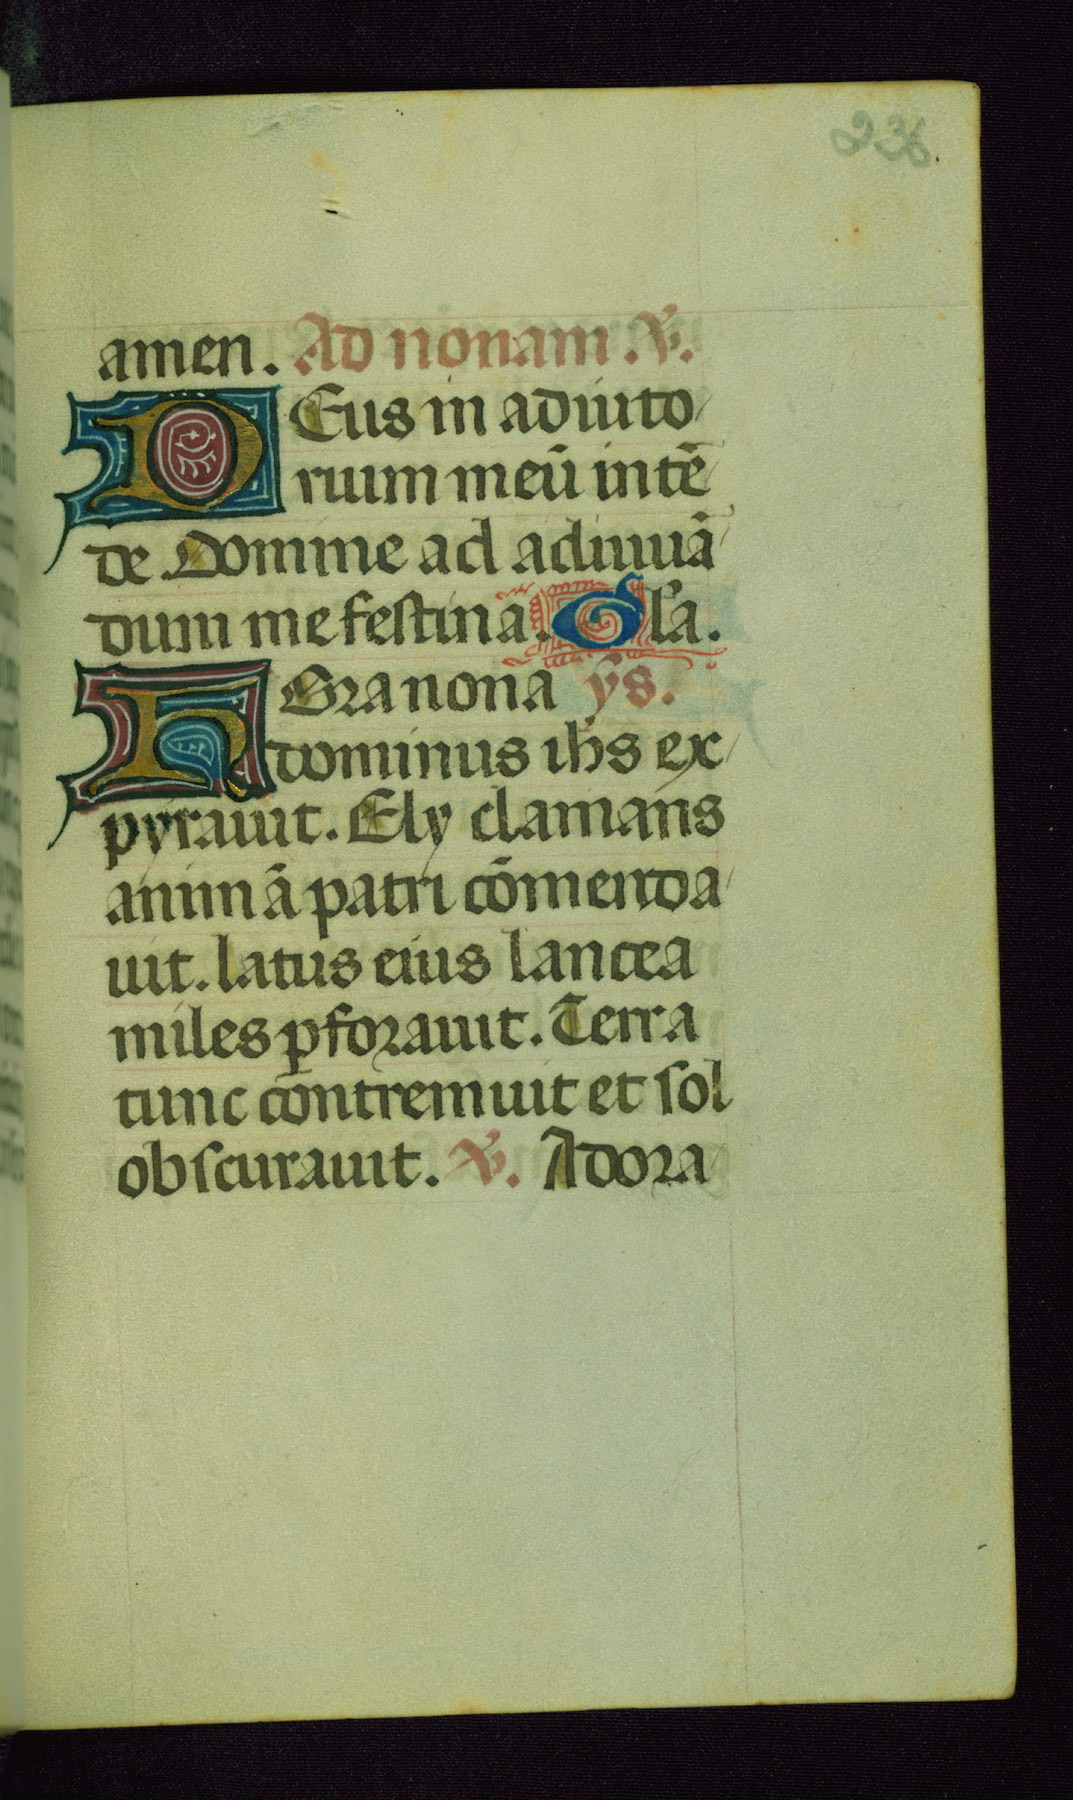 236.
amen. Ad nonam. ℣.
DEus in adiuto
rium meū intē
de Domine ad adiuuā
dum me festina. Gla.
HOra nona ẏs.
dominus ihs ex
pyrauit. Ely clamans
animā patri cōmenda
uit. latus eius lancea
miles ꝑforauit. Terra
tunc contremuit et sol
obscurauit. ℣. Adora